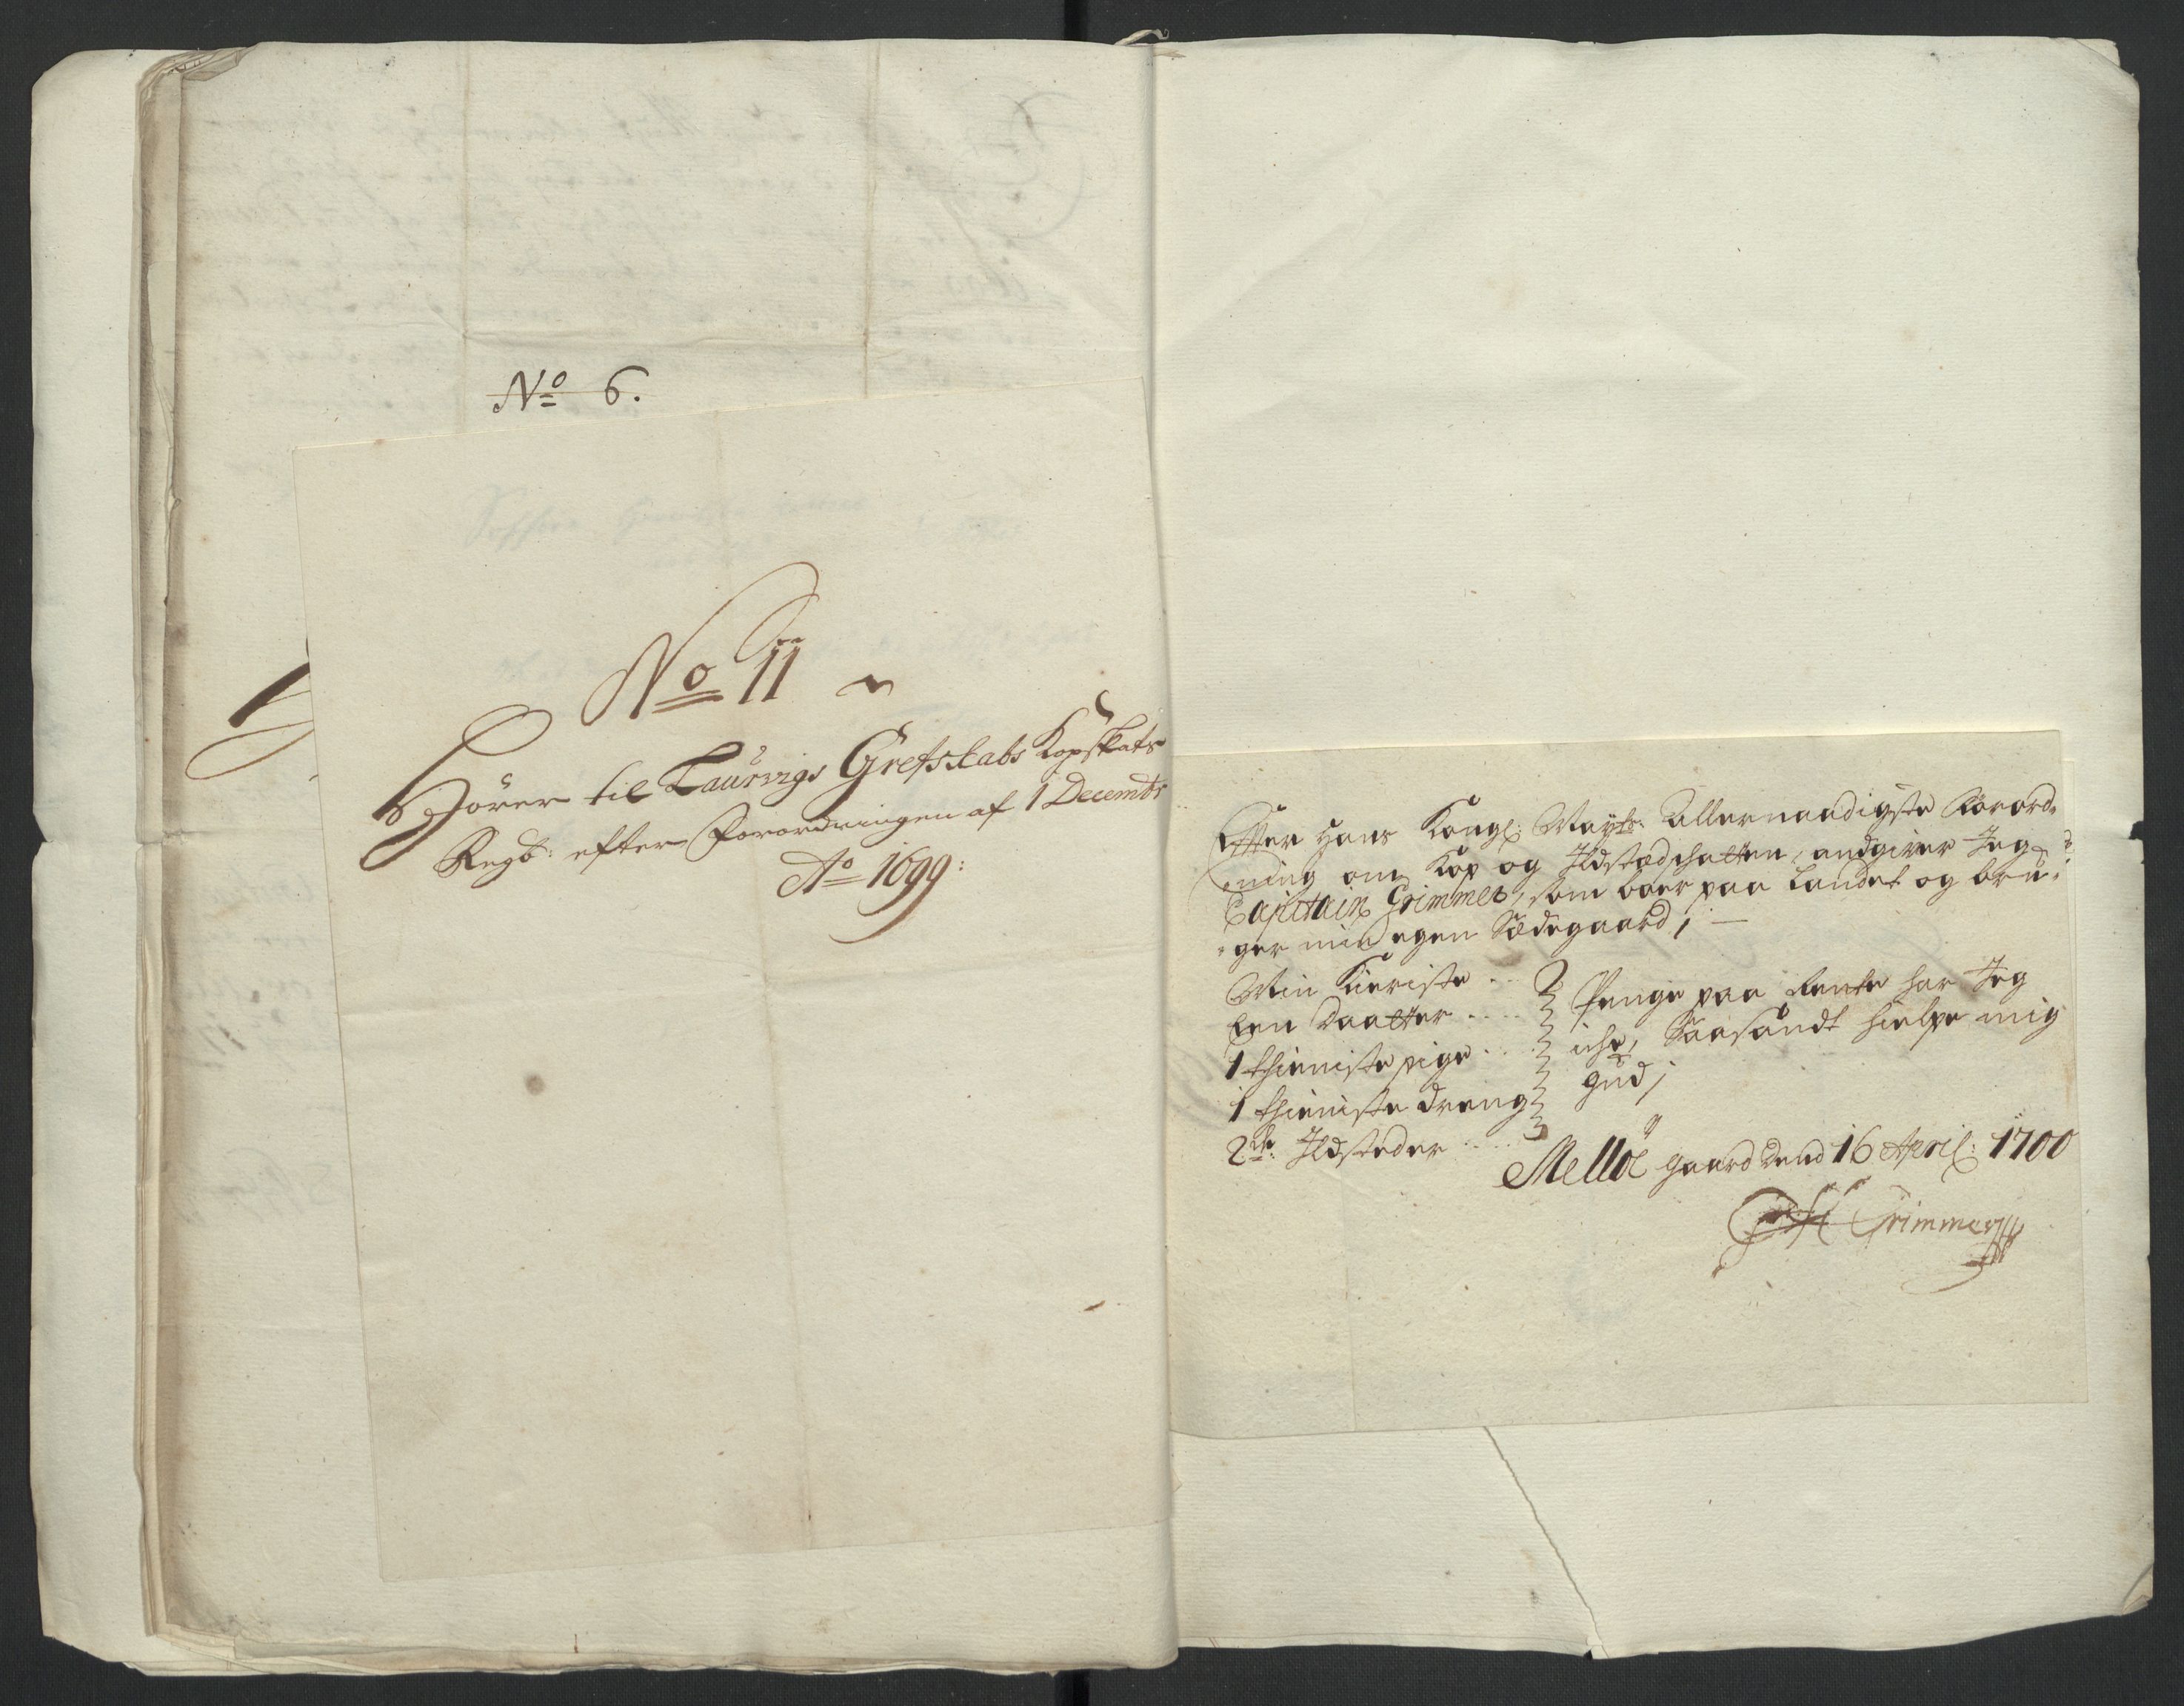 No 6.
No 11
Hörer til Laurvigs Grefskabs Kopskats
Regb: efter Forordningen af 1 Decembr
Ao 1699:
Efter Hans Kongl: Mayts: Allernaadigste Forord-
-ning om Kop og Ildstedschatten, andgiver Jeg
Capitain Grimmer, som boer paa Landet og bru-
-ger min egen Sædegaard;
Min Kieriste ..
Een Daatter ....
1 thieniste pige ...
1 thieniste dreng
2de: Ildsteder ....
Penge paa Rente har Jeg
iche, Saasandt hielpe mig
Gud;
Melløe gaard dend 16 April: 1700
Grimmer